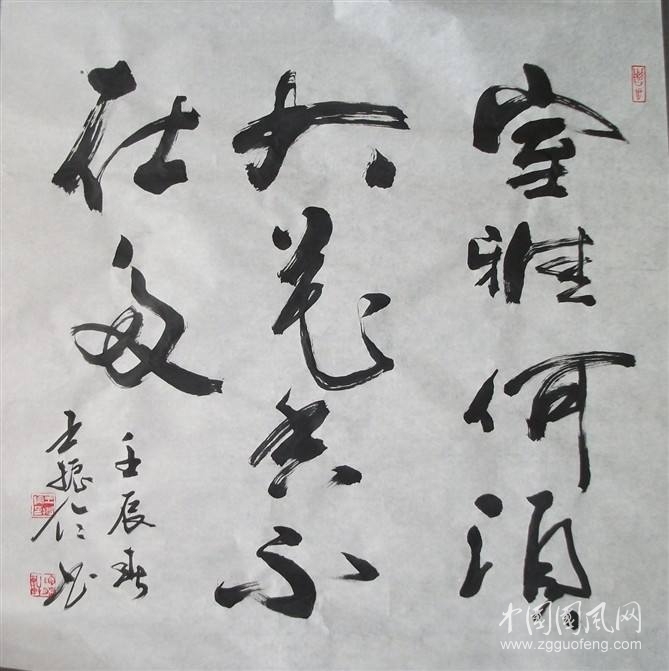 室雅何須
大花香不
在多
壬辰春
王振
中国国风网
www.zgguofeng.com